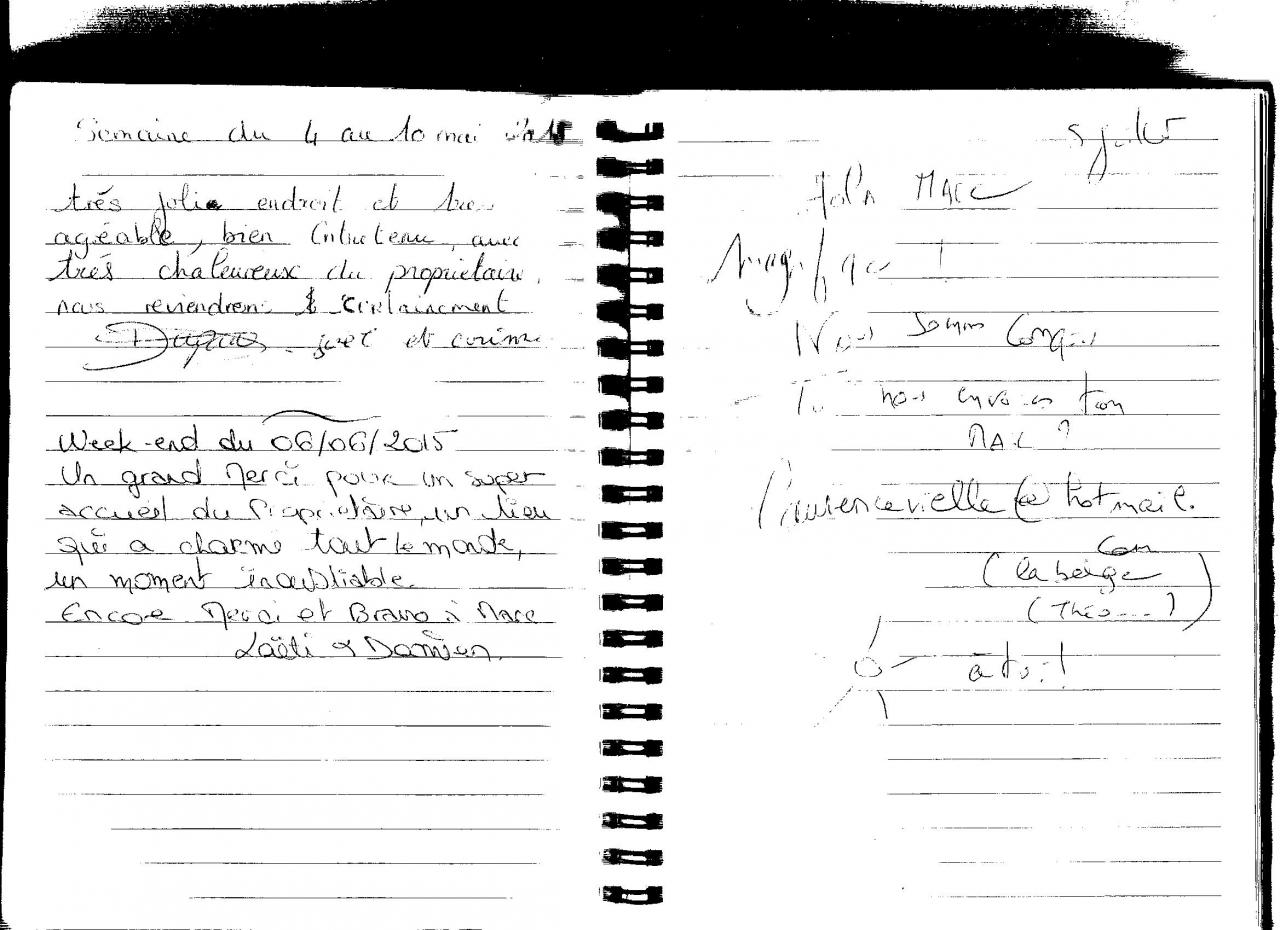 Semaine du 4 au 10 mai 2015
très jolie endroit et très
agéable, bien entretenu, avec
très chaleureux du propriétaire,
nous reviendrons certainement
joel et corinne
Week-end du 06/06/2015
Un grand Merci pour un super
accueil du Propriétaire, un lieu
qui a charmé tout le monde,
un moment inoubliable.
Encore Merci et Bravo à Marc
Laëti & Damien.
5 juil 15
Marc
Magnifique !
Nous sommes conquis
Tu nous envoies ton
MAIL ?
@ hotmail.
com
(la beige
(Théo---?)
à toi !